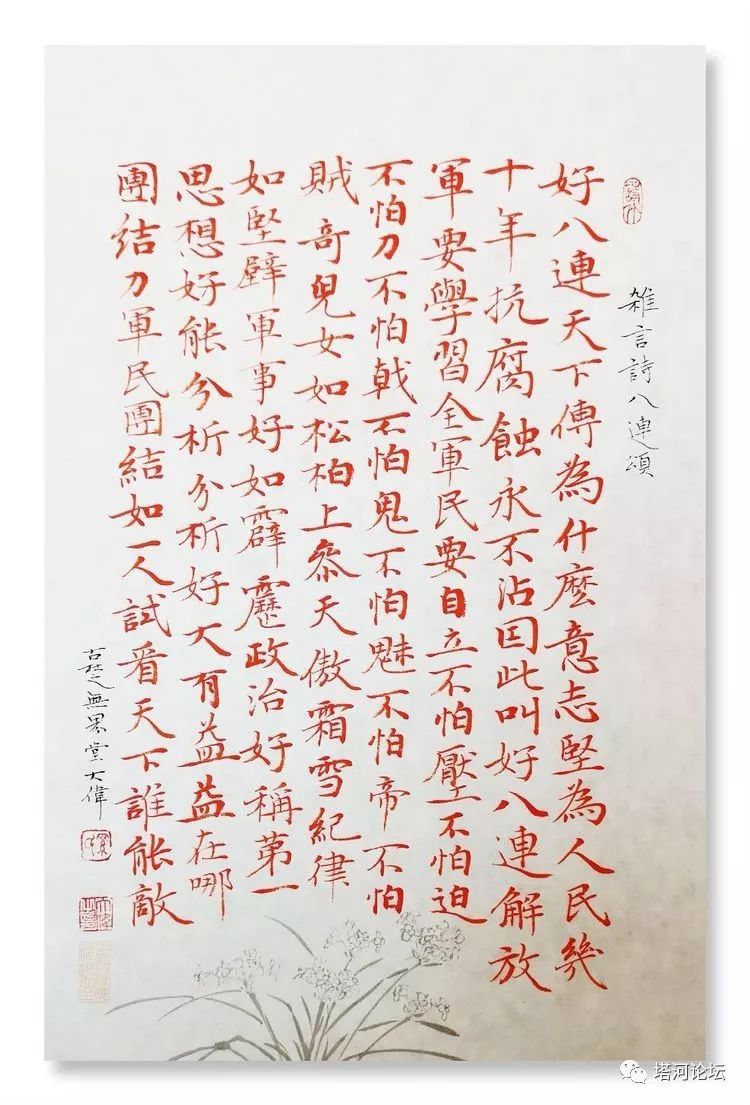 雜言詩八連頌
好八連天下傳為什麼意志堅為人民幾
十年抗腐蝕永不沾因此叫好八連解放
軍要學習全軍民要自立不怕壓不怕迫
不怕刀不怕戟不怕鬼不怕魅不怕帝不怕
賊奇兒女如松柏上參天傲霜雪紀律
如堅壁軍事好如霹靂政治好稱第一
思想好能分析分析好大有益益在哪
團結力軍民團結如一人試看天下誰能敵
無界堂大偉
塔河论坛